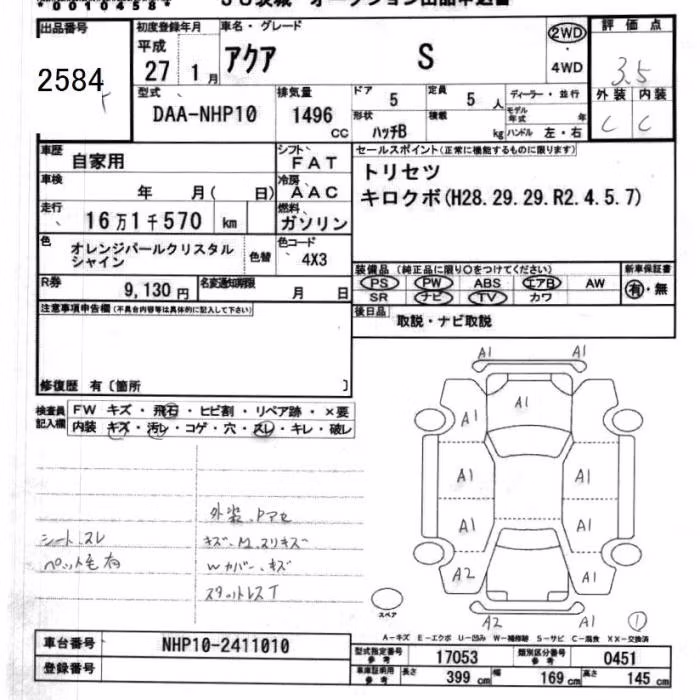 00104584 オークション出品申込書
出品番号
2584
初度登録年月
平成
27 1月
車名・グレード
アクア S
2WD・4WD
評価点
3.5
外装 内装
C C
型式
DAA-NHP10
排気量
1496
CC
ドア 5
定員 5 人
ディーラー・並行
モデル年式 年
形状
ハッチB
積載 kg
ハンドル 左・右
車歴
自家用
シフト
FAT
車検
年 月( 日)
冷房
AAC
走行
16万1千570 km
燃料
ガソリン
色
オレンジパールクリスタル
シャイン
色替
色コード
4X3
R券
9,130円
名変通知期限
月 日
セールスポイント(正常に機能するものに限ります)
トリセツ
キロクボ(H28.29.29.R2.4.5.7)
装備品(純正品に限り○をつけてください)
PS PW ABS エアB AW
SR ナビ TV カワ
新車保証書
有・無
後日品
取説・ナビ取説
注意事項申告欄(不具合内容等は具体的に記入して下さい)
修復歴 有〔箇所 〕
検査員
記入欄
FW キズ・飛石・ヒビ割・リペア跡・×要
内装 キズ・汚レ・コゲ・穴・スレ・キレ・破レ
シート、スレ
ペット毛有
外装、Pアセ
キズ、M、スリキズ
Wカバー、キズ
スタットレスT
A1 A1
A1
A1 A1
A1 A1
A1 A1
A2 A1
A2 A1
スペア
①
A-キズ E-エクボ U-凹み W-補修跡 S-サビ C-腐食 XX-交換済
車台番号
NHP10-2411010
登録番号
型式指定番号
参考
17053
類別区分番号
参考
0451
車庫証明用
参考
長さ 399 cm 幅 169 cm 高さ 145 cm